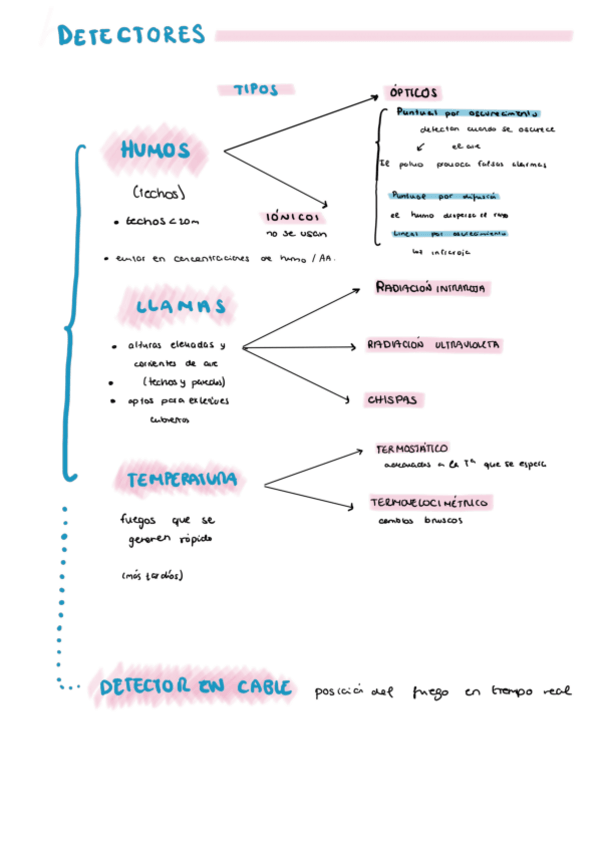 DETECTORES
TIPOS
HUMOS
(techos)
• techos < 20m
• evitar en concentraciones de humo / AA.
ÓPTICOS
Puntual por oscurecimiento
detectan cuando se oscurece
↙ el aire
El polvo provoca falsas alarmas
Puntual por difusión
el humo dispersa el rayo
Lineal por oscurecimiento
luz infrarroja
IÓNICOS
no se usan
LLAMAS
• alturas elevadas y
corrientes de aire
• (techos y paredes)
• aptos para exteriores
cubiertos
RADIACIÓN INFRAROJA
RADIACIÓN ULTRAVIOLETA
CHISPAS
TEMPERATURA
fuegos que se
generen rápido
(más tardíos)
TERMOSTÁTICO
adecuados a la Tª que se espera
TERMOVELOCIMÉTRICO
cambios bruscos
DETECTOR EN CABLE
posición del fuego en tiempo real